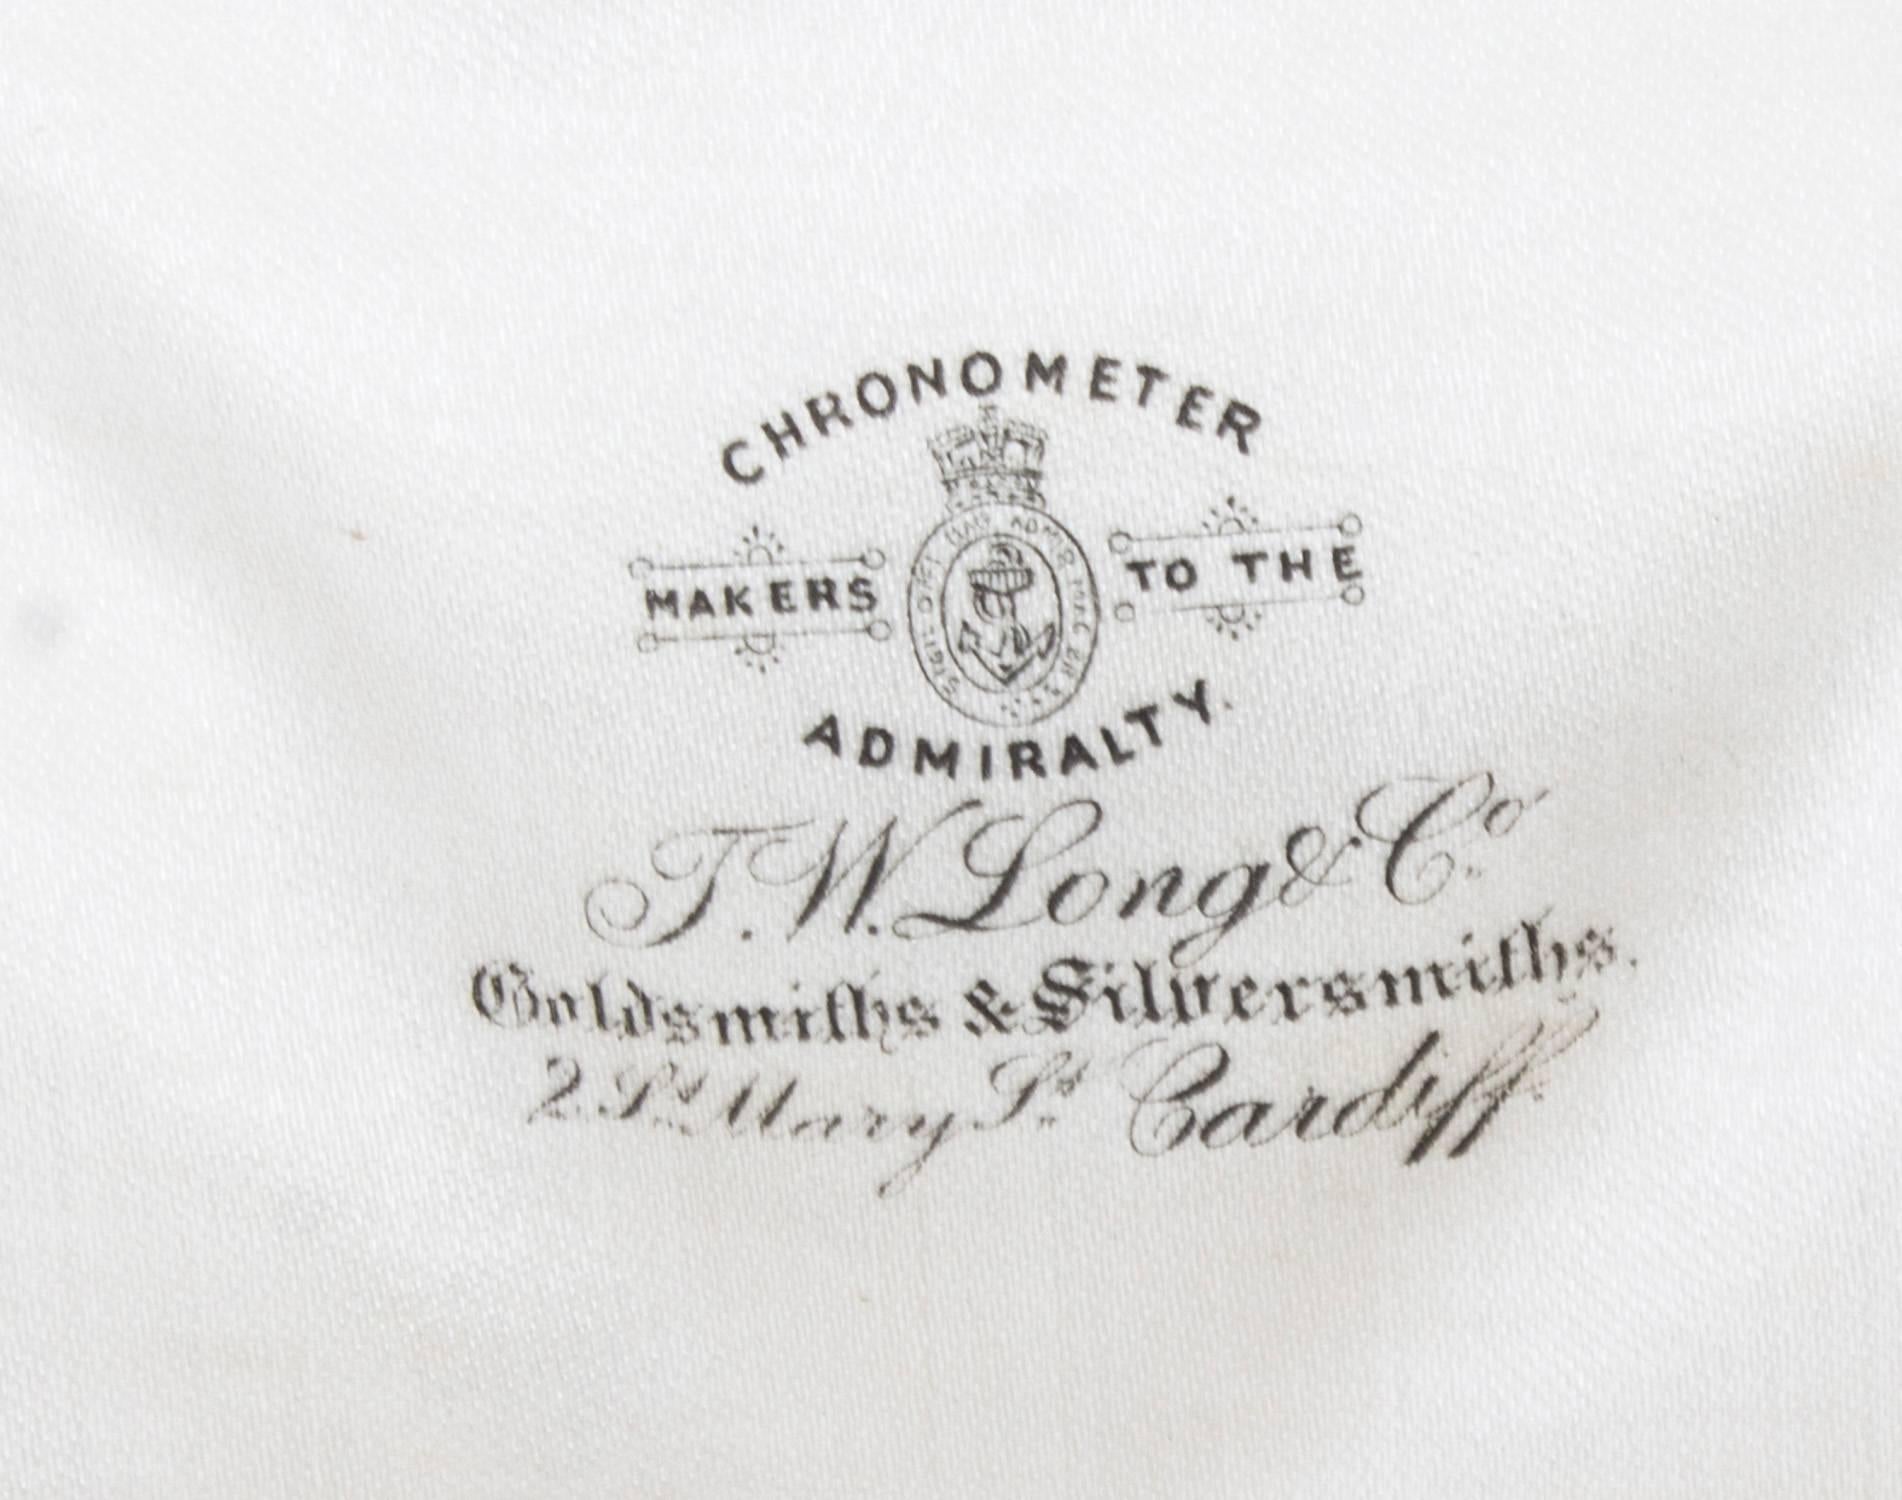 CHRONOMETER
MAKERS TO THE
ADMIRALTY.
T. W. Long & Co.
Goldsmiths & Silversmiths.
2 St. Mary St. Cardiff